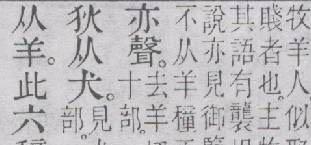 牧羊人似
賤者也。主
其語有襲
說亦見御
不从羊橦
亦聲。去羊
十部。
狄从犬。見
部。
从羊。此六